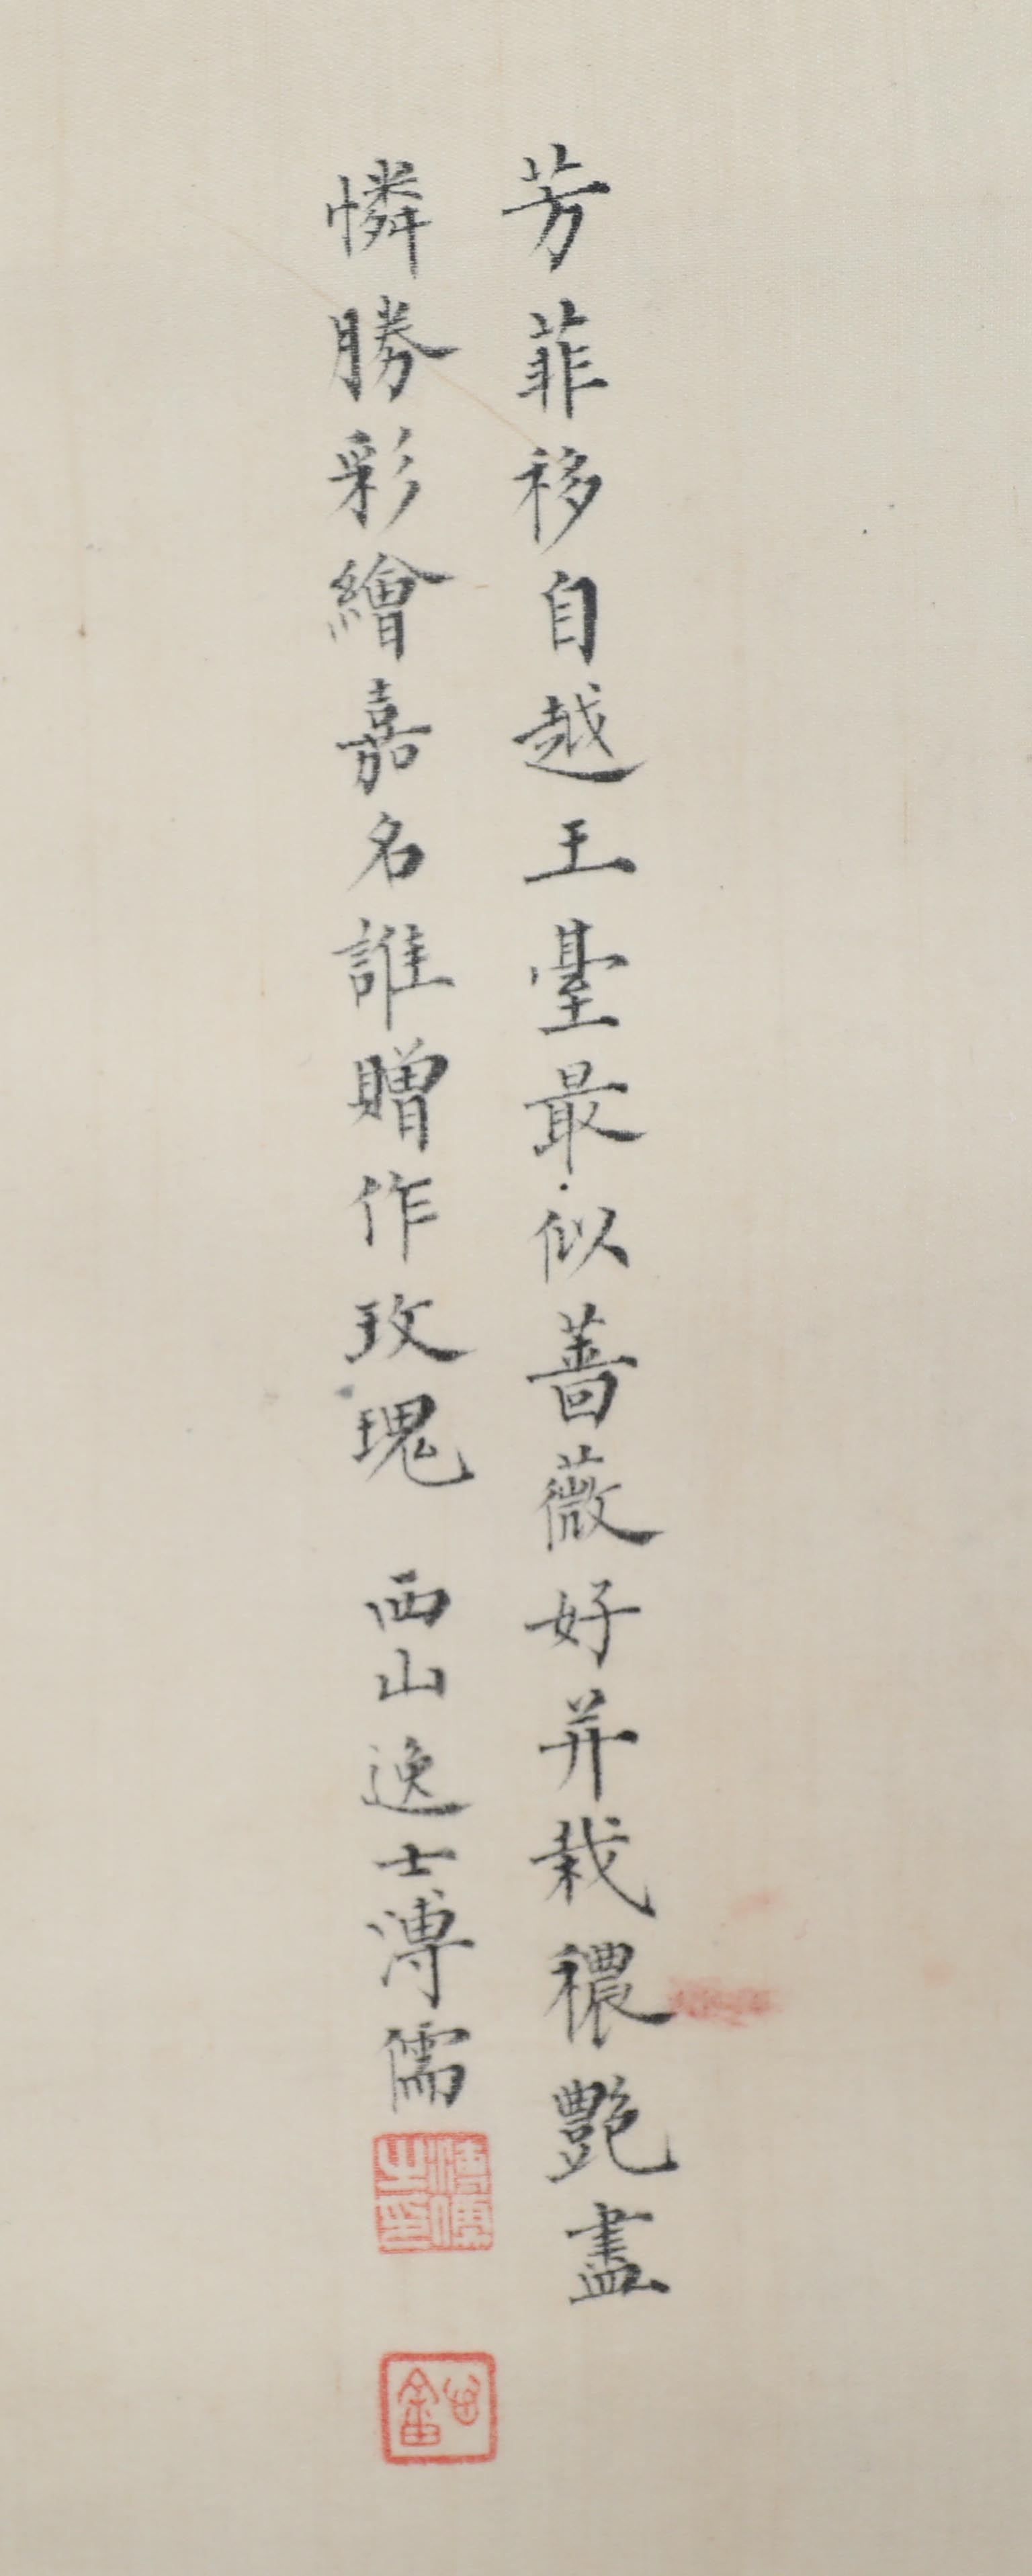 芳菲移自越王臺最似薔薇好并栽穠艷盡
憐勝彩繪嘉名誰贈作玫瑰 西山逸士溥儒
溥儒之印